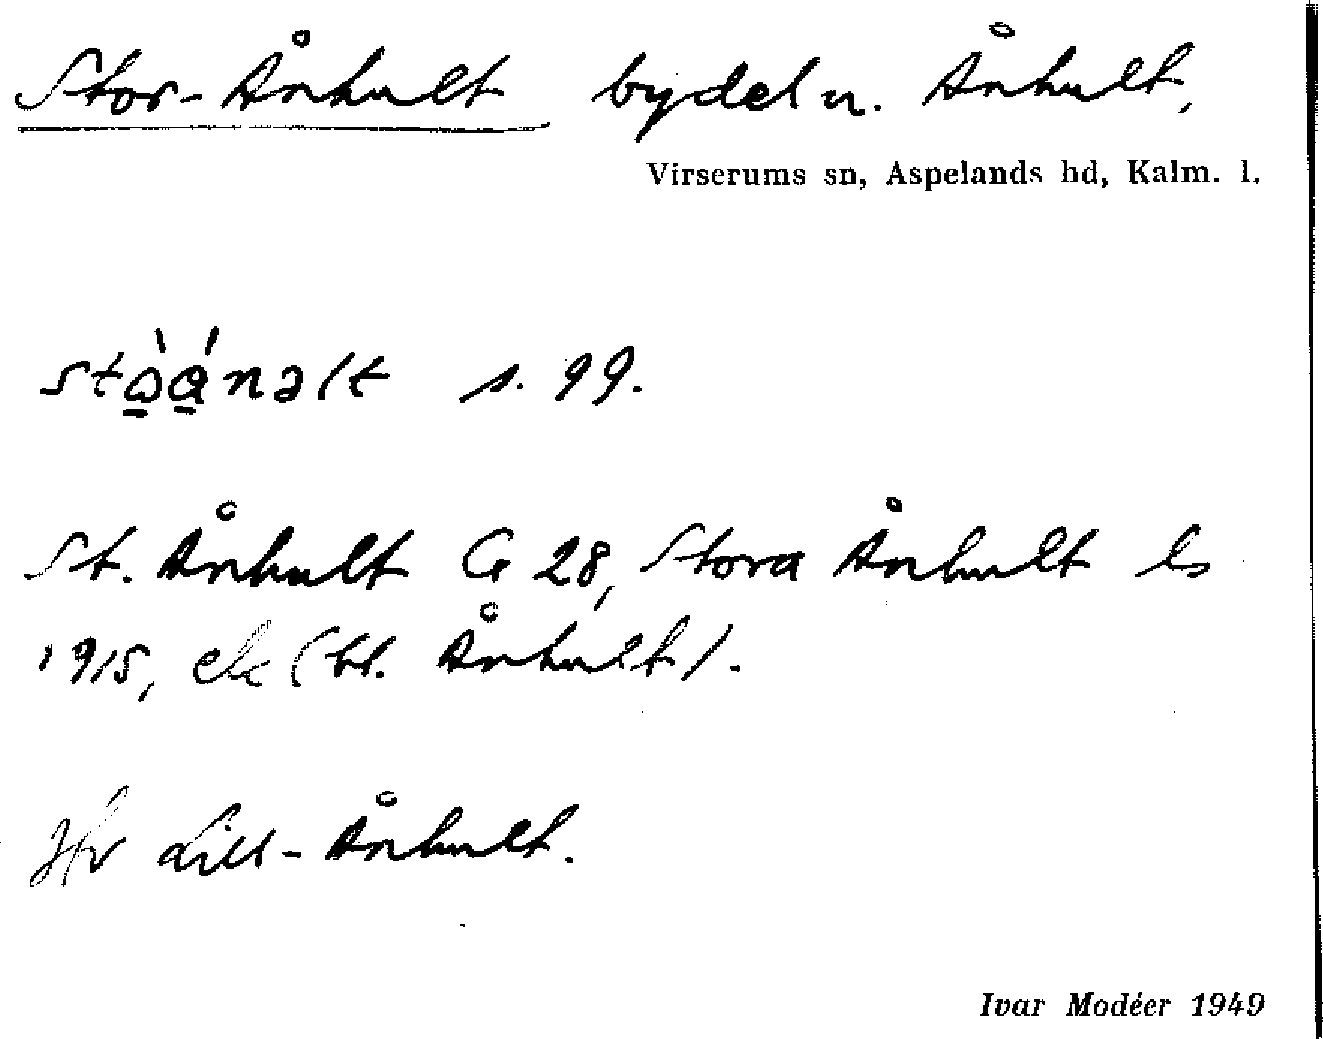 Stor-Ånhult bydel u. Ånhult,
Virserums sn, Aspelands hd, Kalm. l.
s. 99.
St. Ånhult G 28, Stora Ånhult ls
1915, etc (bl. Ånhult).
Jfr Lill-Ånhult.
Ivar Modéer 1949